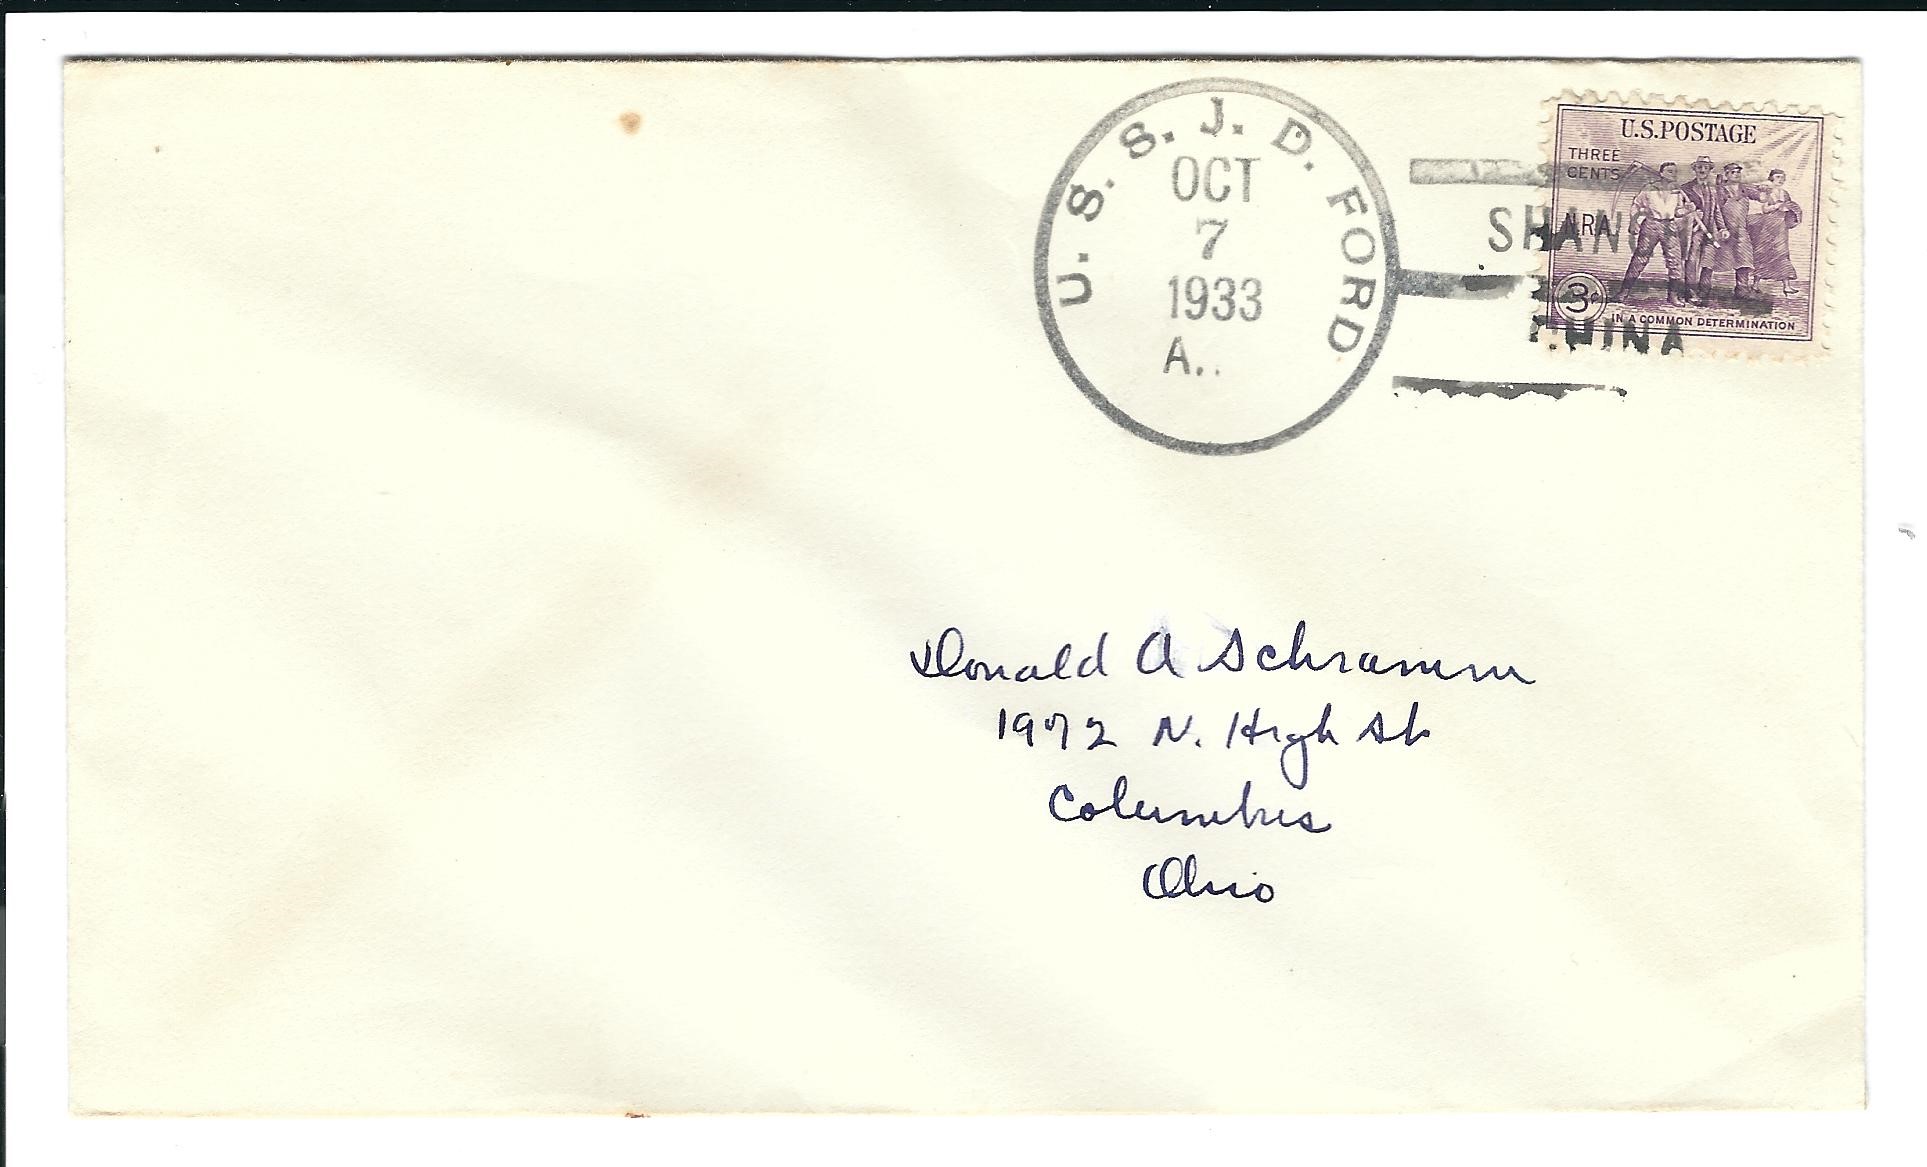 U. S. S. J. D. FORD
OCT
7
1933
A.
SHANGHA
CHINA
U.S.POSTAGE
THREE
CENTS
N.R.A.
3¢
IN A COMMON DETERMINATION
Donald A Schramm
1972 N. High St
Columbus
Ohio